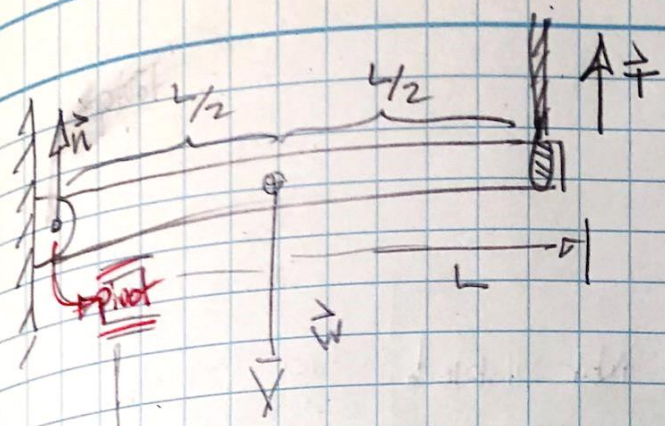 L/2
L/2
T
n
pivot
L
W